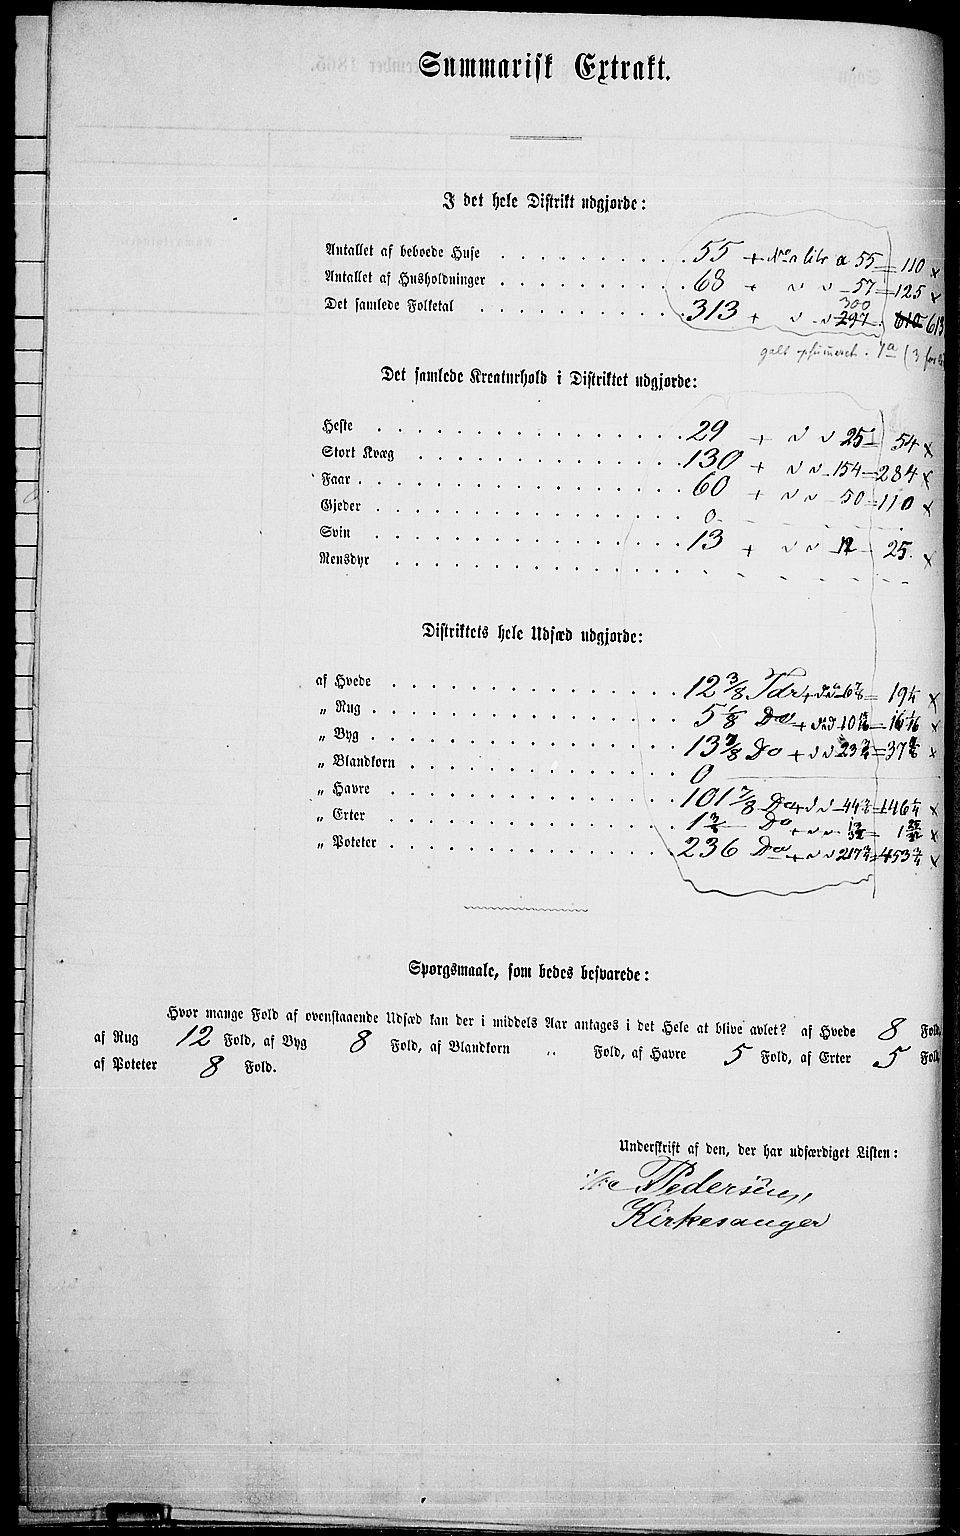 Summarisk Extrakt.
I det hele Distrikt udgjorde:
Antallet af beboede Huse 55 + No 1 litr a 55 = 110 x
Antallet af Husholdninger 68 + " " 57 = 125 x
300
Det samlede Folketal 313 + " " 297 610 613
galt opsummeret (3 for
Det samlede Kreaturhold i Distriktet udgjorde:
Heste 29 + " " 25 = 54 x
Stort Kvæg 130 + " " 154 = 284 x
Faar 60 + " " 50 = 110 x
Gjeder 0
Svin 13 + " " 12 25 x
Rensdyr
Distriktets hele Udsæd udgjorde:
af Hvede 12 3/8 Tdr + 6 7/8 = 19 1/4 x
„ Rug 5 1/8 Do + = 16 1/16 x
„ Byg 13 7/8 Do + " " 23 = 37 x
„ Blandkorn 0
„ Havre 101 7/8 Do + " " 44 = 146 1/4 x
„ Erter 1 Do + " " = 1 x
„ Poteter 236 Do + " " 217 3/4 = 453 3/4 x
Spørgsmaale, som bedes besvarede:
Hvor mange Fold af ovenstaaende Udsæd kan der i middels Aar antages i det Hele at blive avlet? af Hvede 8 Fold,
af Rug 12 Fold, af Byg 8 Fold, af Blandkorn „ Fold, af Havre 5 Fold, af Erter 5 Fold,
af Poteter 8 Fold.
Underskrift af den, der har udfærdiget Listen:
Pedersen,
Kirkesanger